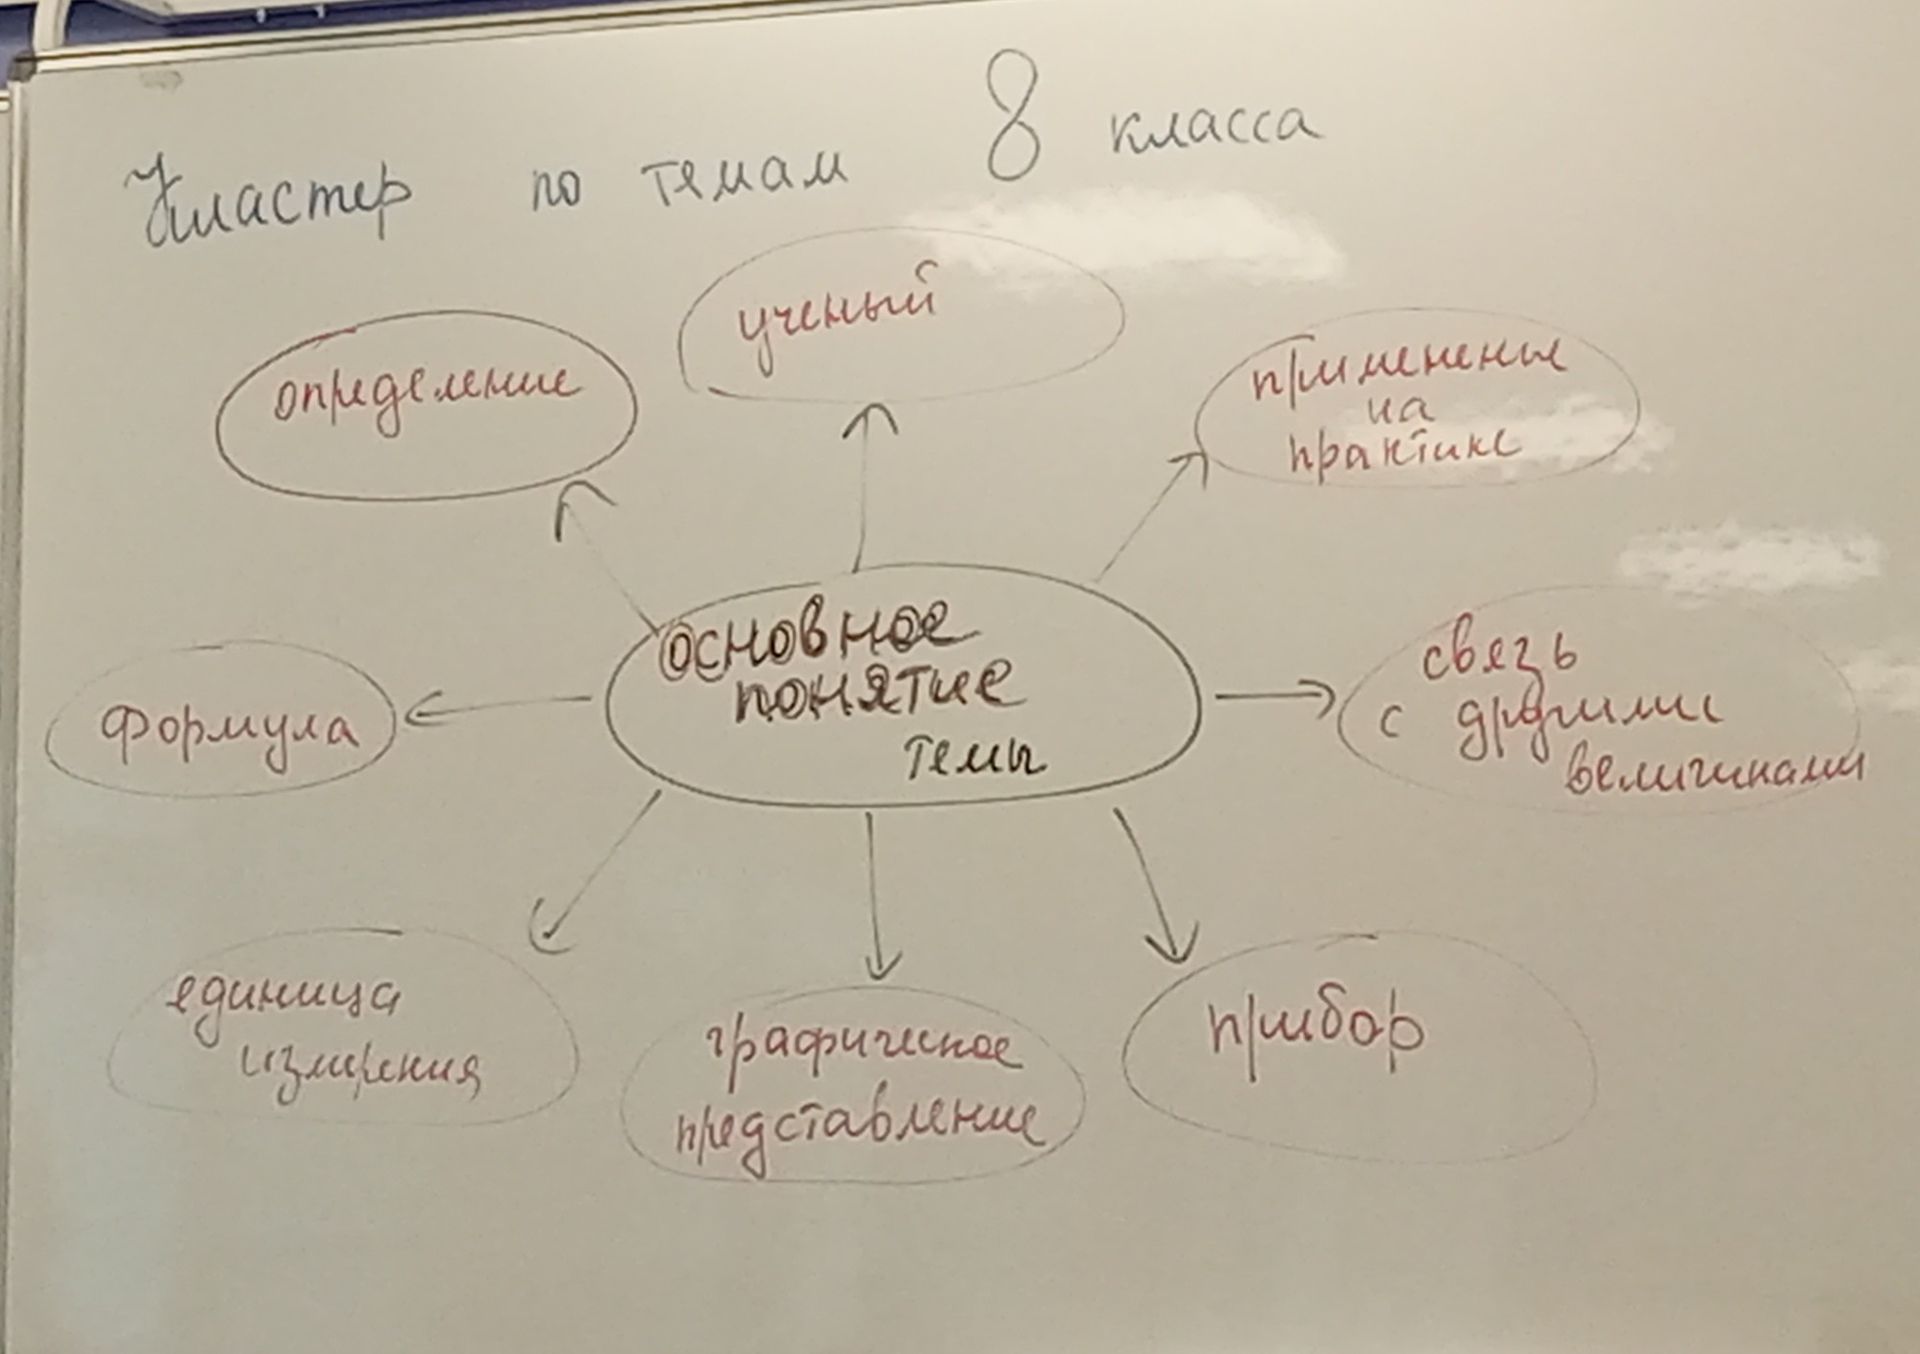 Кластер по темам 8 класса
ученый
определение
применение
на
практике
основное
понятие
темы
связь
с другими
величинами
формула
единица
измерения
графическое
представление
прибор